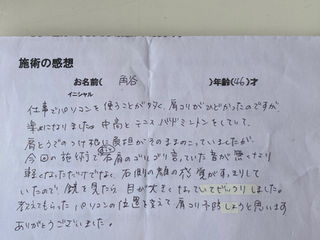 施術の感想
お名前( 角谷 )年齢(46)才
イニシャル
仕事でパソコンを使うことが多く、肩コリがひどかったのですが
楽になりました。中高とテニス バドミントンをしていて、
肩とうでのつけ根に疲れがそのまま残っていましたが
今回の施術で右肩のゴリゴリ言っていた音が無くなり
軽くなっただけでなく、右側の顔の感覚がすっきりして
いたので 鏡を見たら 目が大きくなっていてびっくりしました。
教えてもらったパソコンの位置を変えて 肩コリ予防しようと思います
ありがとうございました。